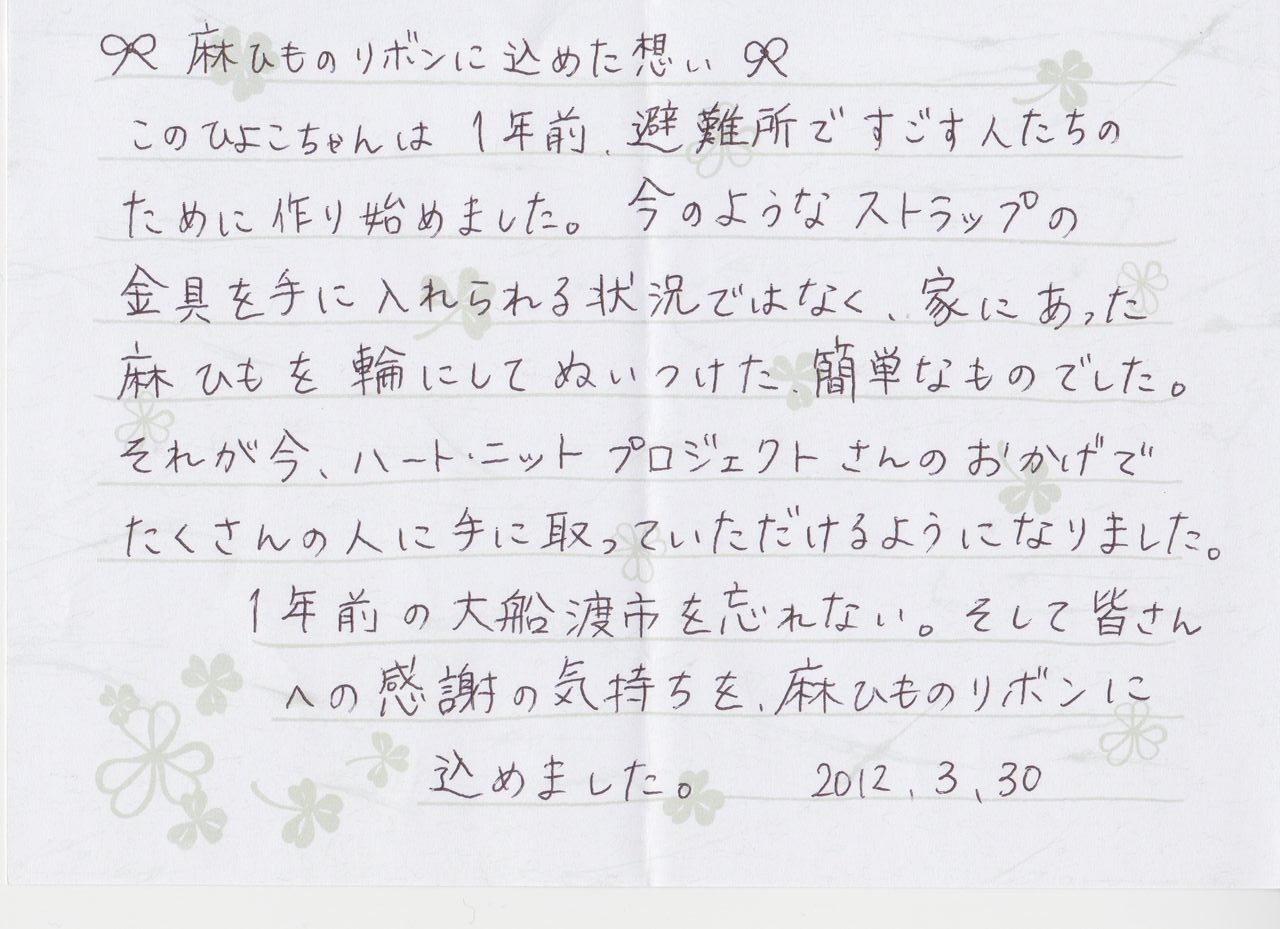 麻ひものリボンに込めた想い
このひよこちゃんは 1年前、避難所ですごす人たちの
ために作り始めました。今のようなストラップの
金具を手に入れられる状況ではなく、家にあった
麻ひもを輪にしてぬいつけた、簡単なものでした。
それが今、ハート・ニットプロジェクトさんのおかげで
たくさんの人に手に取っていただけるようになりました。
1年前の大船渡市を忘れない。そして皆さん
への感謝の気持ちを、麻ひものリボンに
込めました。 2012、3、30